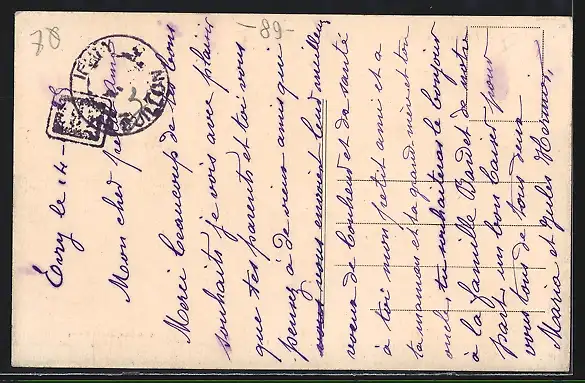 78
- 89 -
Evry le 14-
Mon cher
Merci beaucoup de tes bons
souhaits je vois avec plaisir
que tes parents et toi vous
pensez à de vieux amis qui
vous envoient leurs meilleurs
voeux de bonheur et de santé
à toi mon petit ami et a
ta maman et ta grand mère et ton
oncle, tu souhaiteras le bonjour
à la famille Bardet de notre
part, un bon baiser pour
vous tous de tous deux
Maria et Jules